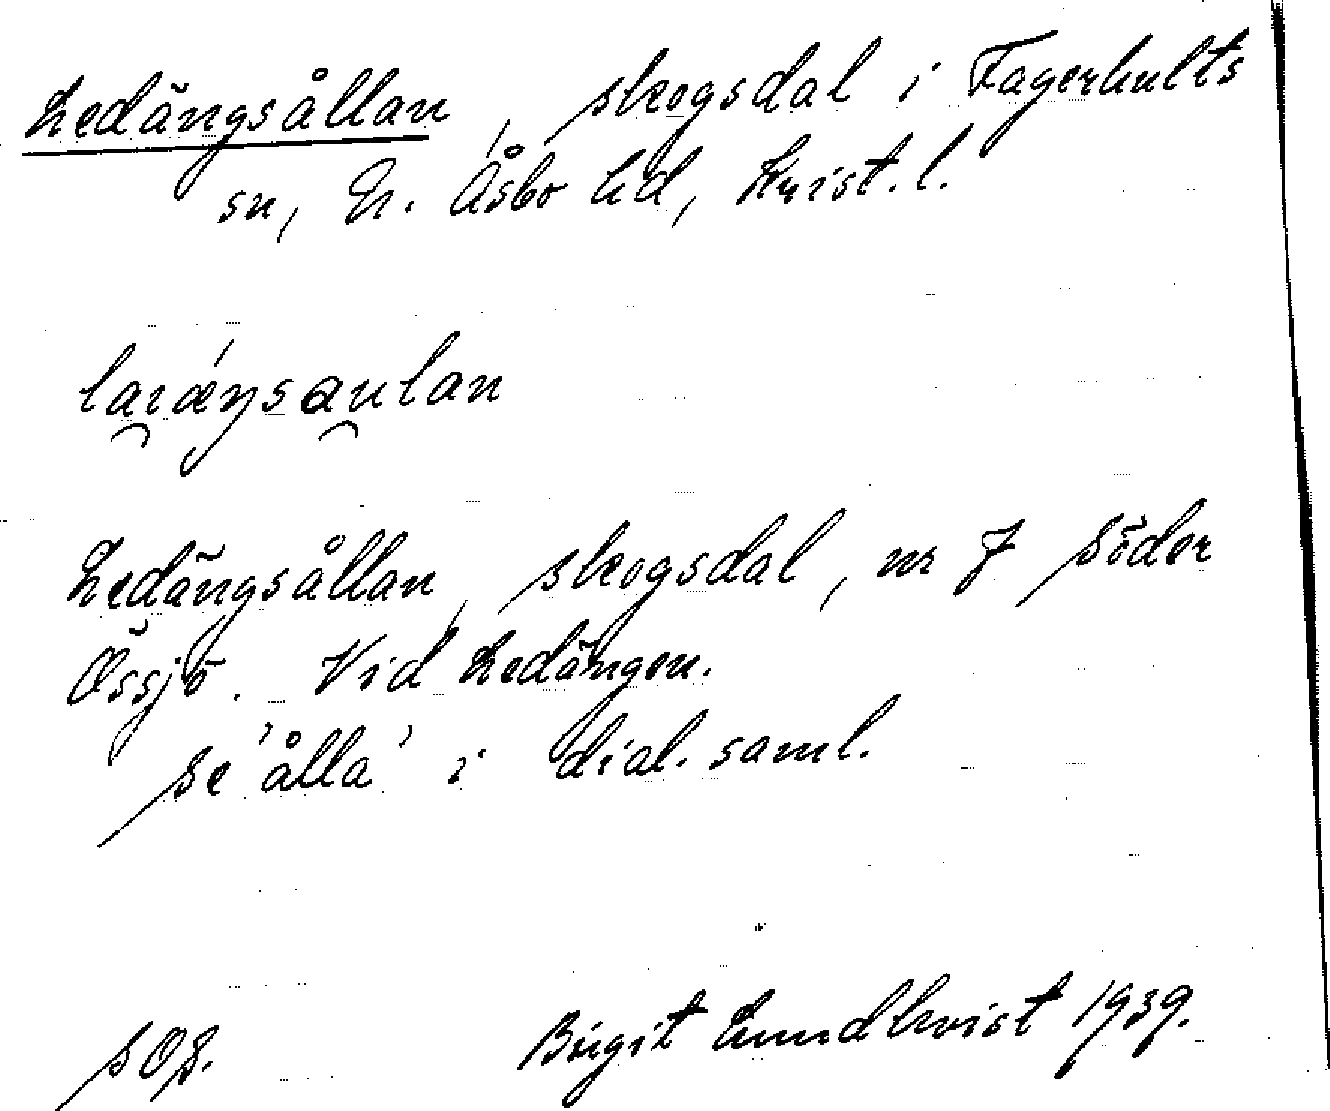 Ledängsållan, skogsdal i Fagerhults
sn, N. Åsbo hd, Krist. l.
Ledängsållan, skogsdal, nr 7 Söder
Össjö. Vid Ledängen.
Se 'ålla' i dial. saml.
SOS.
Birgit Lundkvist 1939.